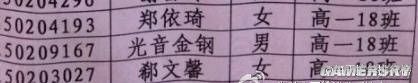 50204193 郑依琦 女 高一18班
50209167 光音金钢 男 高一18班
50203027 郗文馨 女 高一18班
GAMERSKY